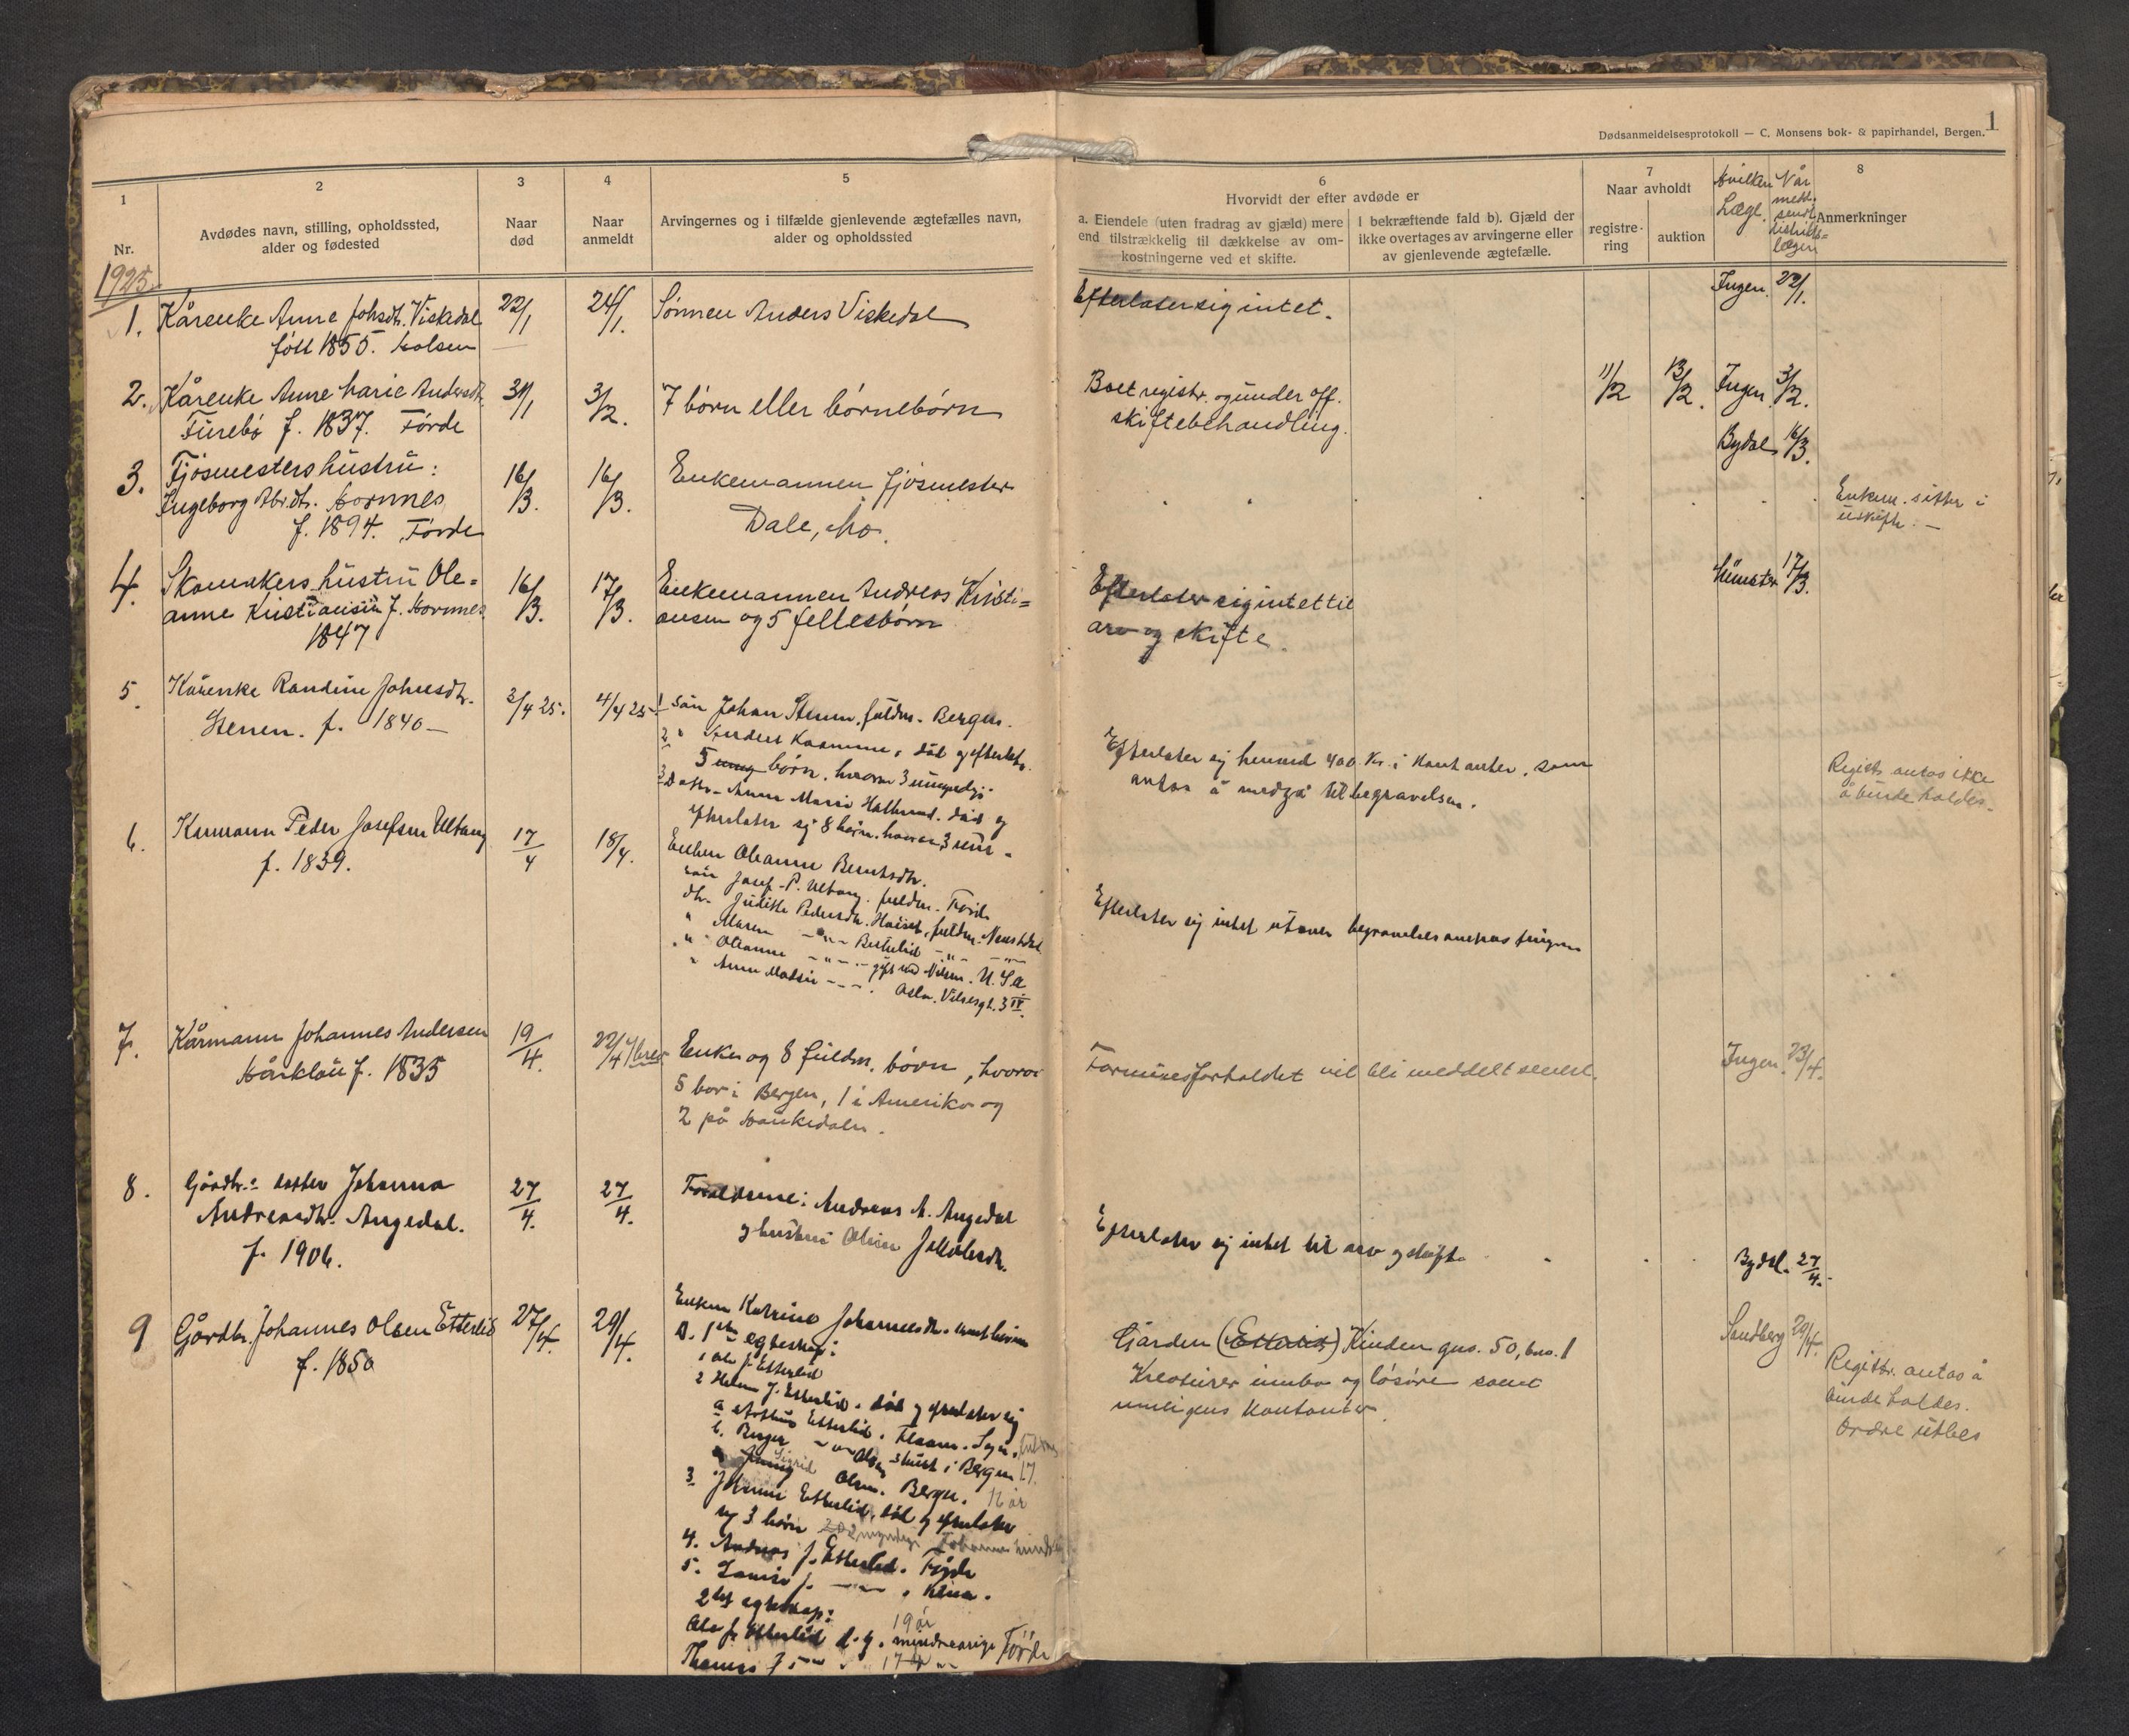 1
Dødsanmeldelsesprotokoll — C. Monsens bok- & papirhandel, Bergen.
1
2
3
4
5
6
7
8
Nr.
Avdødes navn, stilling, opholdssted,
alder og fødested
Naar
død
Naar
anmeldt
Arvingernes og i tilfælde gjenlevende ægtefælles navn,
alder og opholdssted
Hvorvidt der efter avdøde er
a. Eiendele (uten fradrag av gjæld) mere
end tilstrækkelig til dækkelse av om-
kostningerne ved et skifte.
I bekræftende fald b). Gjæld der
ikke overtages av arvingerne eller
av gjenlevende ægtefælle.
Naar avholdt
registre-
ring
auktion
Hvilken
Læge.
Når
medd.
sendt
distrikts=
lægen
Anmerkninger
1925.
1.
Kårenke Anne Johsdtr. Viskedal
født 1855. Holsen
22/1
24/1.
Sønnen Anders Viskedal
Efterlater sig intet.
Ingen.
22/1.
2.
Kårenke Anne Marie Andersdtr.
Furebø f. 1837. Førde
31/1
3/2.
7 børn eller børnebørn
Boet registr. og under off.
skiftebehandling.
11/2
13/2.
Ingen.
3/2.
3.
Fjøsmestershustru:
Ingeborg Abr.dtr. Hornnes
f. 1894. Førde
16/3.
16/3.
Enkemannen fjøsmester
Dale, Mo.
Bydal
16/3.
Enkem. sitter i
uskifte. —
4.
Skomakers hustru Ole=
anne Kristiansen f. Hornnes.
1847
16/3.
17/3.
Enkemannen Andreas Kristi=
ansen og 5 fellesbørn
Efterlater sig intet til
arv og skifte.
17/3.
5.
Kårenke Randine Johnesdtr.
Stenen. f. 1840 —
3/4 25.
4/4 25.
1 Søn Johan Stenen, fuldm. Bergen.
død og efterlat.
5 børn, hvorav 3 umyndige
3 Datter Anne Marie Halbrend. død og
efterlater sig 8 børn. hvorav 3 um.
Efterlater sig henved 400 Kr. i kontanter, som
antas å medgå til begravelsen.
Registr. antas ikke
å burde holdes.
6.
Kårmann Peder Josefsen Ultang
f. 1839.
17/4
18/4.
Enken Oleanne Berntsdtr.
søn Josef P. Ultang. fuldm. Førde
dtr. Judithe Pedersdtr. fuldm. Naustdal
" Maren — " —
" Oleanne — " — gift med Nilsen. U.S.a
" Anne Madsine — Oslo. Vibesgt. 3 IV.
Efterlater sig intet utover begravelsesomkostningene
7.
Kårmann Johannes Andersen
Hårklau f. 1835
19/4.
22/4 i brev
Enke og 8 fuldm. børn, hvorav
5 bor i Bergen, 1 i Amerika og
2 på Haukedalen.
Formuesforholdet vil bli meddelt senere.
Ingen.
23/4.
8.
Gårdbr. datter Johanna
Andreasdtr. Angedal.
f. 1906.
27/4.
27/4.
Foreldrene: Andreas A. Angedal
og hustru Oline Jakobsdtr.
Efterlater sig intet til arv og skifte
Bydal.
27/4.
9
Gårdbr. Johannes Olsen Etterlid
f. 1850
27/4.
29/4.
Enken Katrine Johannesdtr. samt børn
A. 1ste egteskap:
1 Ole J. Etterlid
2 Helen J. Etterlid. død og efterlater sig
a Arthur Etterlid. Flaam. Sogn.
b. Birger — " — Olsen i Bergen 17.
Sigrid Olsen. Bergen. 16 år
3. Johannes Etterlid, død og efterlater
sig 3 børn
4. Andreas J. Etterlid. Førde
5. Lovise J. — " — . Kina.
2det egteskap:
Ole J. Etterlid d.y. 19 år mindreårig Førde
Thomas J — " — 17 "
Gården (Etterlid) Hinden gno. 50, bno. 1
Kreaturer innbo og løsøre samt
kontanter.
Sandberg
29/4.
Registr. antas å
burde holdes.
Ordre utbes